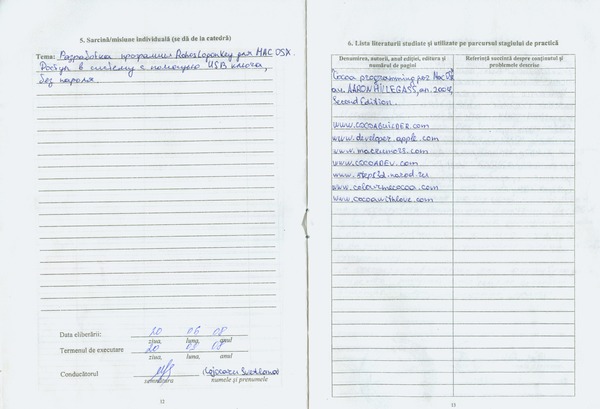 5. Sarcină/misiune individuală (se dă de la catedră)
Tema: Разработка программы RohosLogonKey для MAC OSX.
Доступ в систему с помощью USB ключа,
без пароля.
Data eliberării: 20 06 08
ziua, luna, anul
Termenul de executare 20 08
ziua, luna, anul
Conducătorul
semnătura numele şi prenumele
12
6. Lista literaturii studiate şi utilizate pe parcursul stagiului de practică
Denumirea, autorii, anul ediţiei, editura şi numărul de pagini
Referinţă succintă despre conţinutul şi problemele descrise
Cocoa programming for Mac OS
au. AARON HILLEGASS, an. 2004,
Second Edition.
www.COCOABUILDER.com
www.developer.apple.com
www.macruno23.com
www.COCOADEV.com
www.stepsid.narod.ru
www.colourmecocoa.com
www.cocoawithlove.com
13